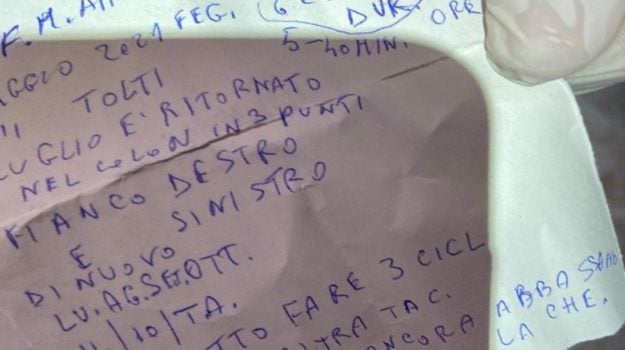 F.M.
FEG. (6 DUR. OPE
GGIO 2021 5-40 MIN.
TOLTI
LUGLIO E' RITORNATO
NEL COLON IN 3 PUNTI
FIANCO DESTRO
E SINISTRO
DI NUOVO
LU.AG.SET.OTT.
/10/TA.
TTO FARE 3 CICL
LTRA TAC. ABBA
ANCORA LA CHE.